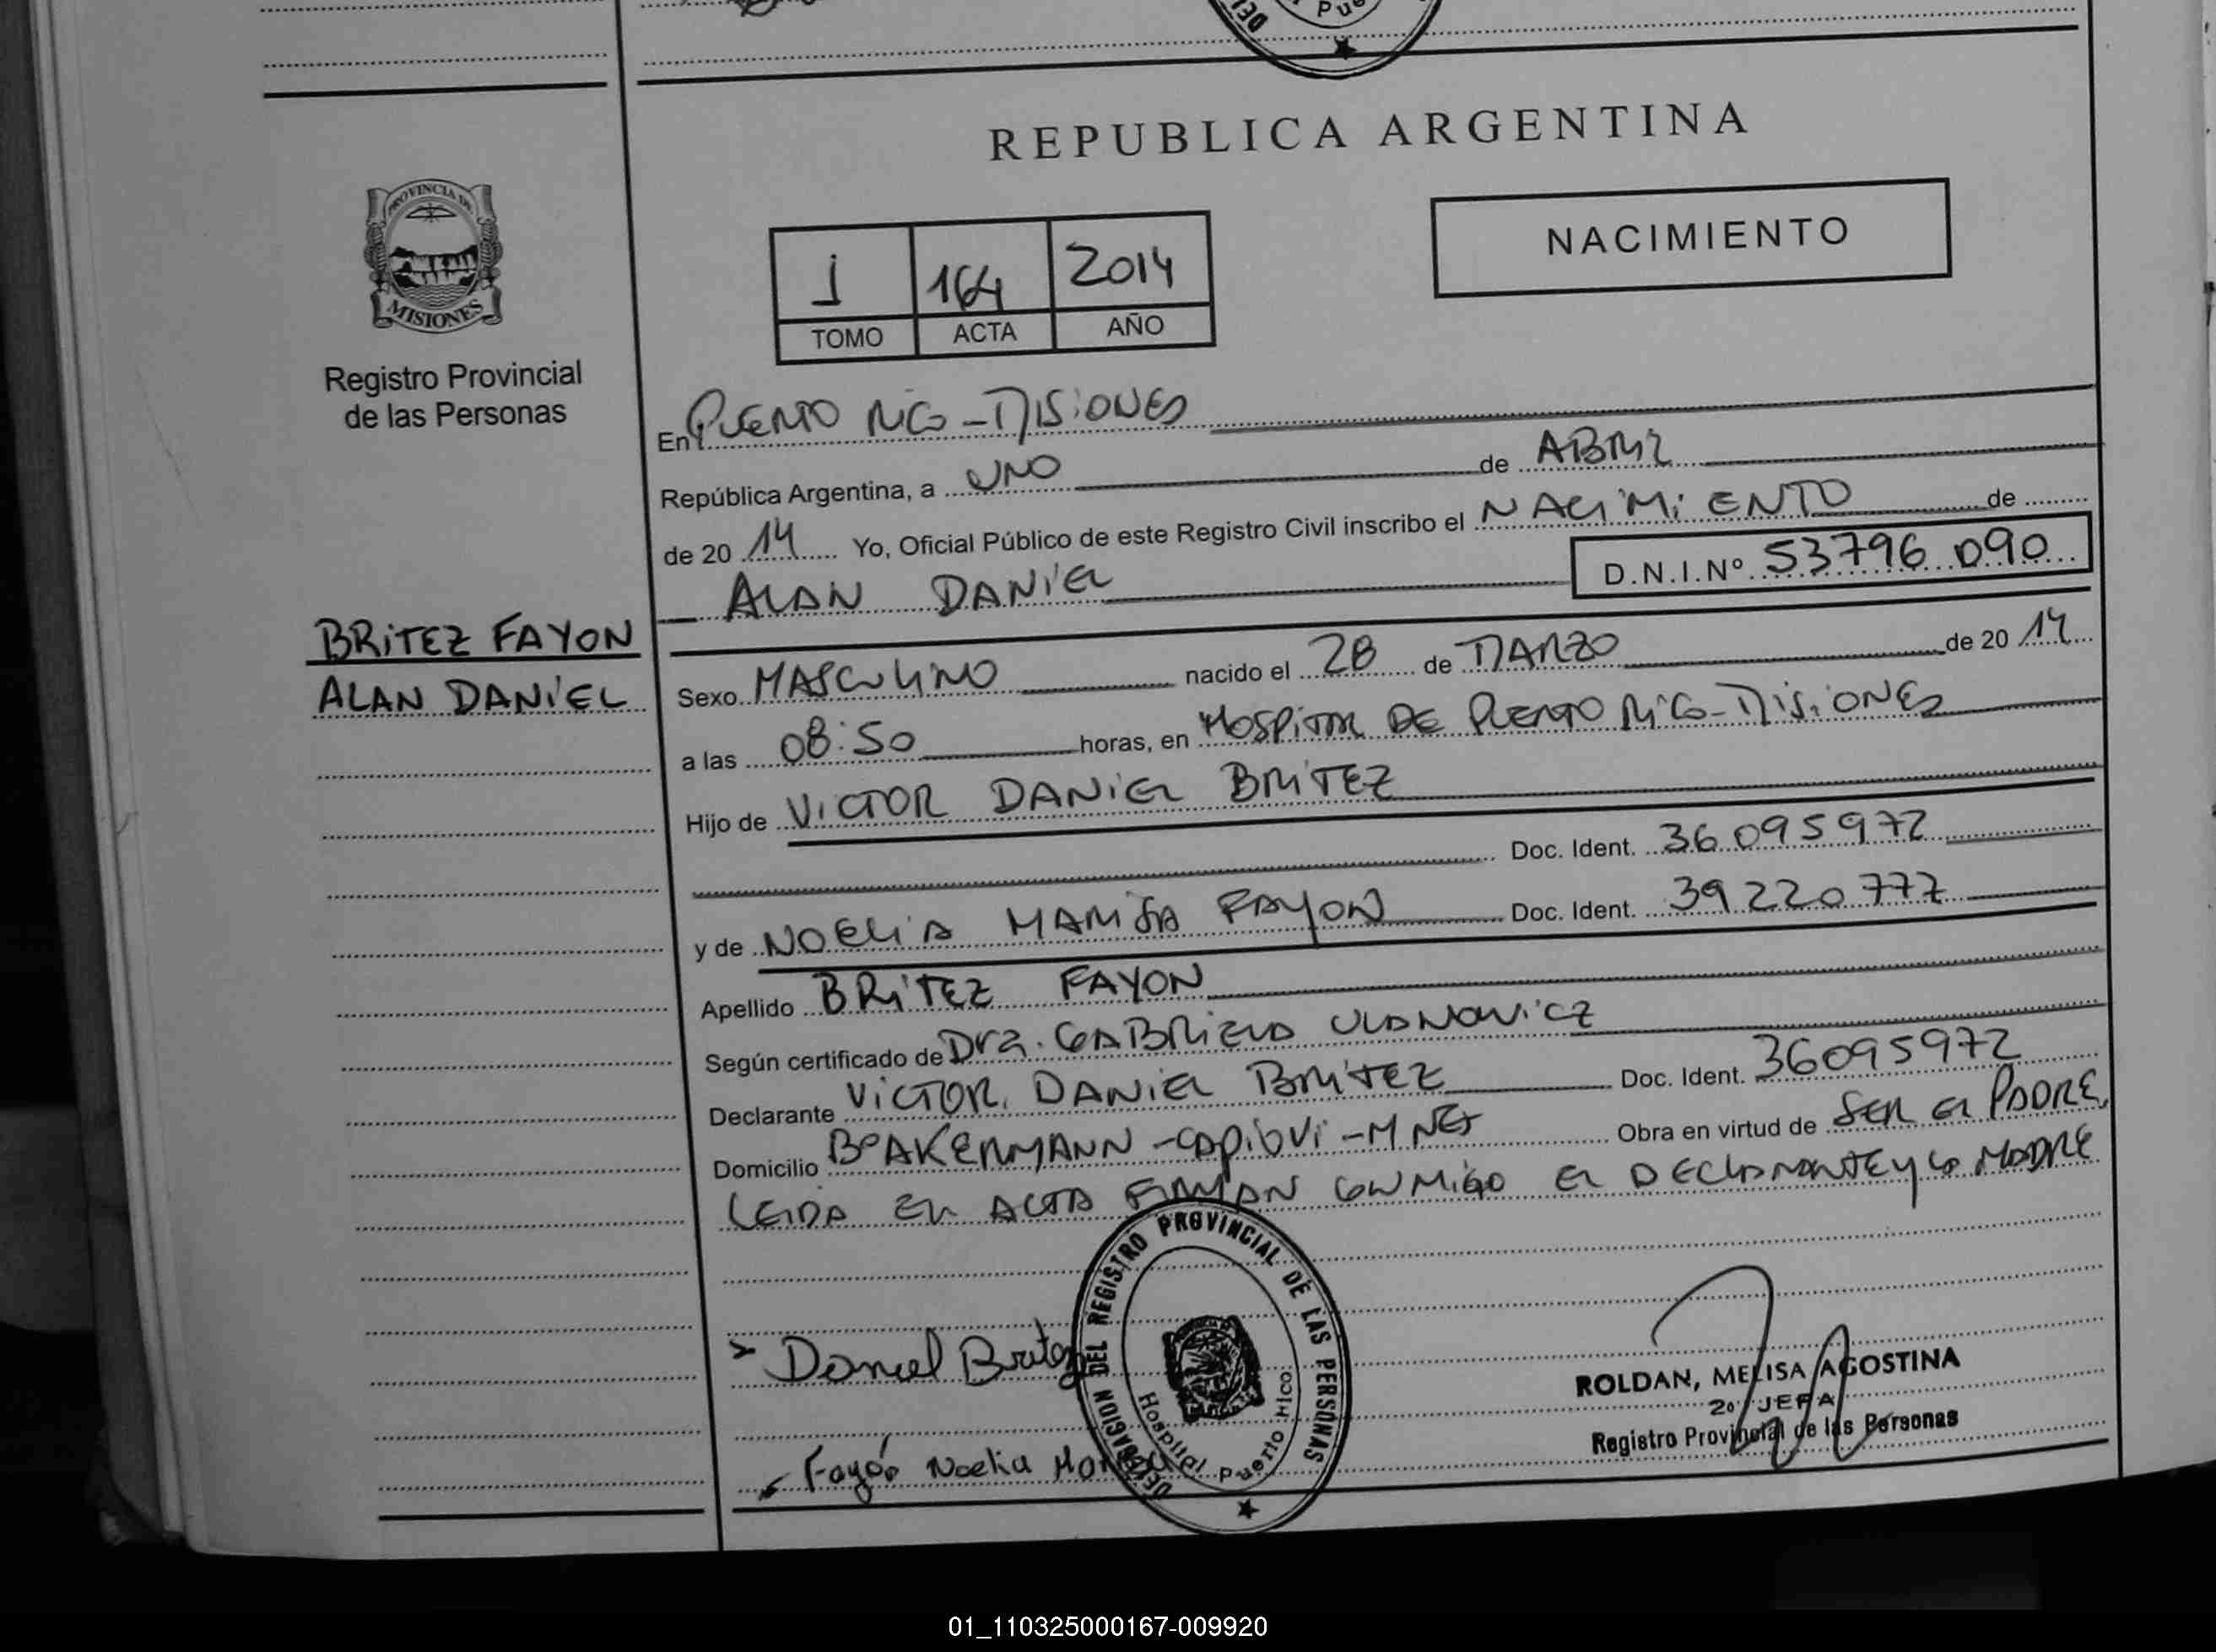 REPUBLICA ARGENTINA
PROVINCIA DE
MISIONES
Registro Provincial
de las Personas
NACIMIENTO
1 164 2014
TOMO ACTA AÑO
En PUERTO RICO - MISIONES
República Argentina, a UNO de ABRIL
de 20 14 Yo, Oficial Público de este Registro Civil inscribo el NACIMIENTO de
ALAN DANIEL D.N.I.Nº 53796 090
BRITEZ FAYON
ALAN DANIEL
Sexo MASCULINO nacido el 28 de MARZO de 20 14
a las 08:50 horas, en HOSPITAL DE PUERTO RICO - MISIONES
Hijo de VICTOR DANIEL BRITEZ
Doc. Ident. 36095972
y de NOELIA MARISA FAYON Doc. Ident. 39220777
Apellido BRITEZ FAYON
Según certificado de Dra. GABRIELA ULANOWICZ
Declarante VICTOR DANIEL BRITEZ Doc. Ident. 36095972
Domicilio Bº AKERMANN - CAPIOVI - MNES Obra en virtud de SER EL PADRE,
LEIDA EL ACTA FIRMAN CONMIGO EL DECLARANTE Y LA MADRE
DELEGACION DEL REGISTRO PROVINCIAL DE LAS PERSONAS
Hospital Puerto Rico
Daniel Britez
Fayón Noelia
ROLDAN, MELISA AGOSTINA
2º JEFA
Registro Provincial de las Personas
01_110325000167-009920